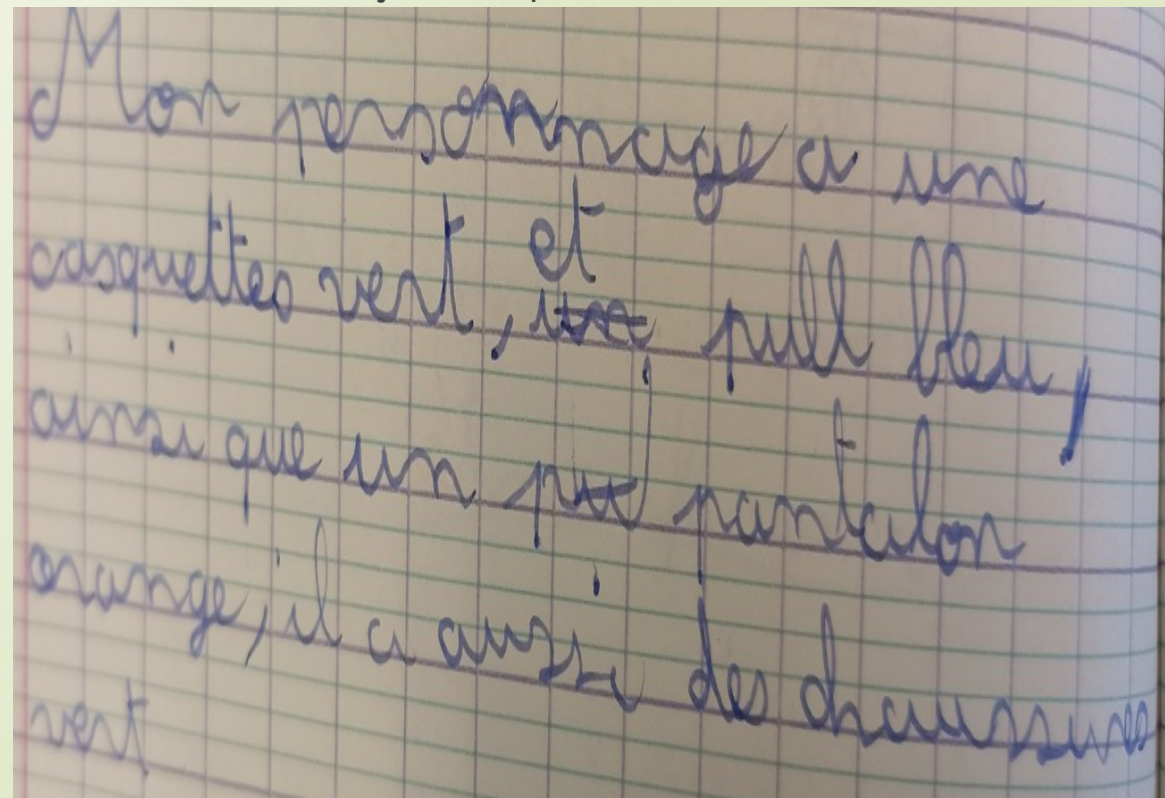 Mon personnage a une
casquettes vert, et pull bleu,
ainsi que un pantalon
orange, il a aussi des chaussures
vert